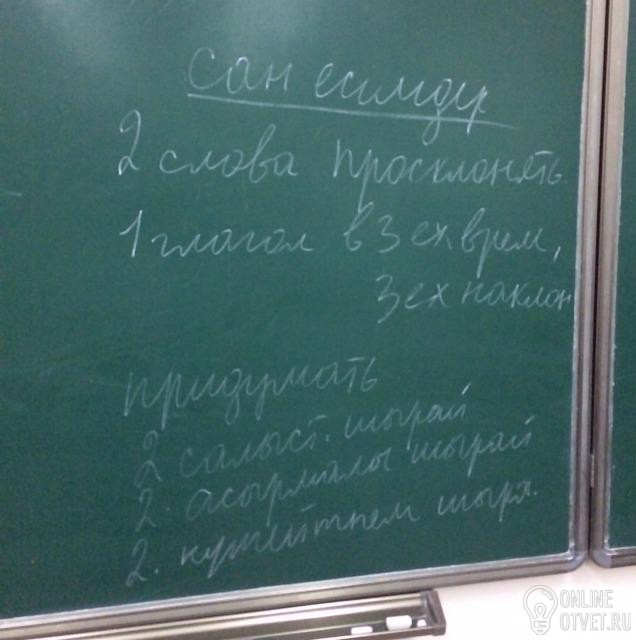 Сан есімдер
2 слова просклонять
1 глагол в 3 ех врем,
3 ех наклон
придумать
2 салыст. шырай
2. асырмалы шырай
2. күшейтпем шыра.
ONLINE
OTVET.RU